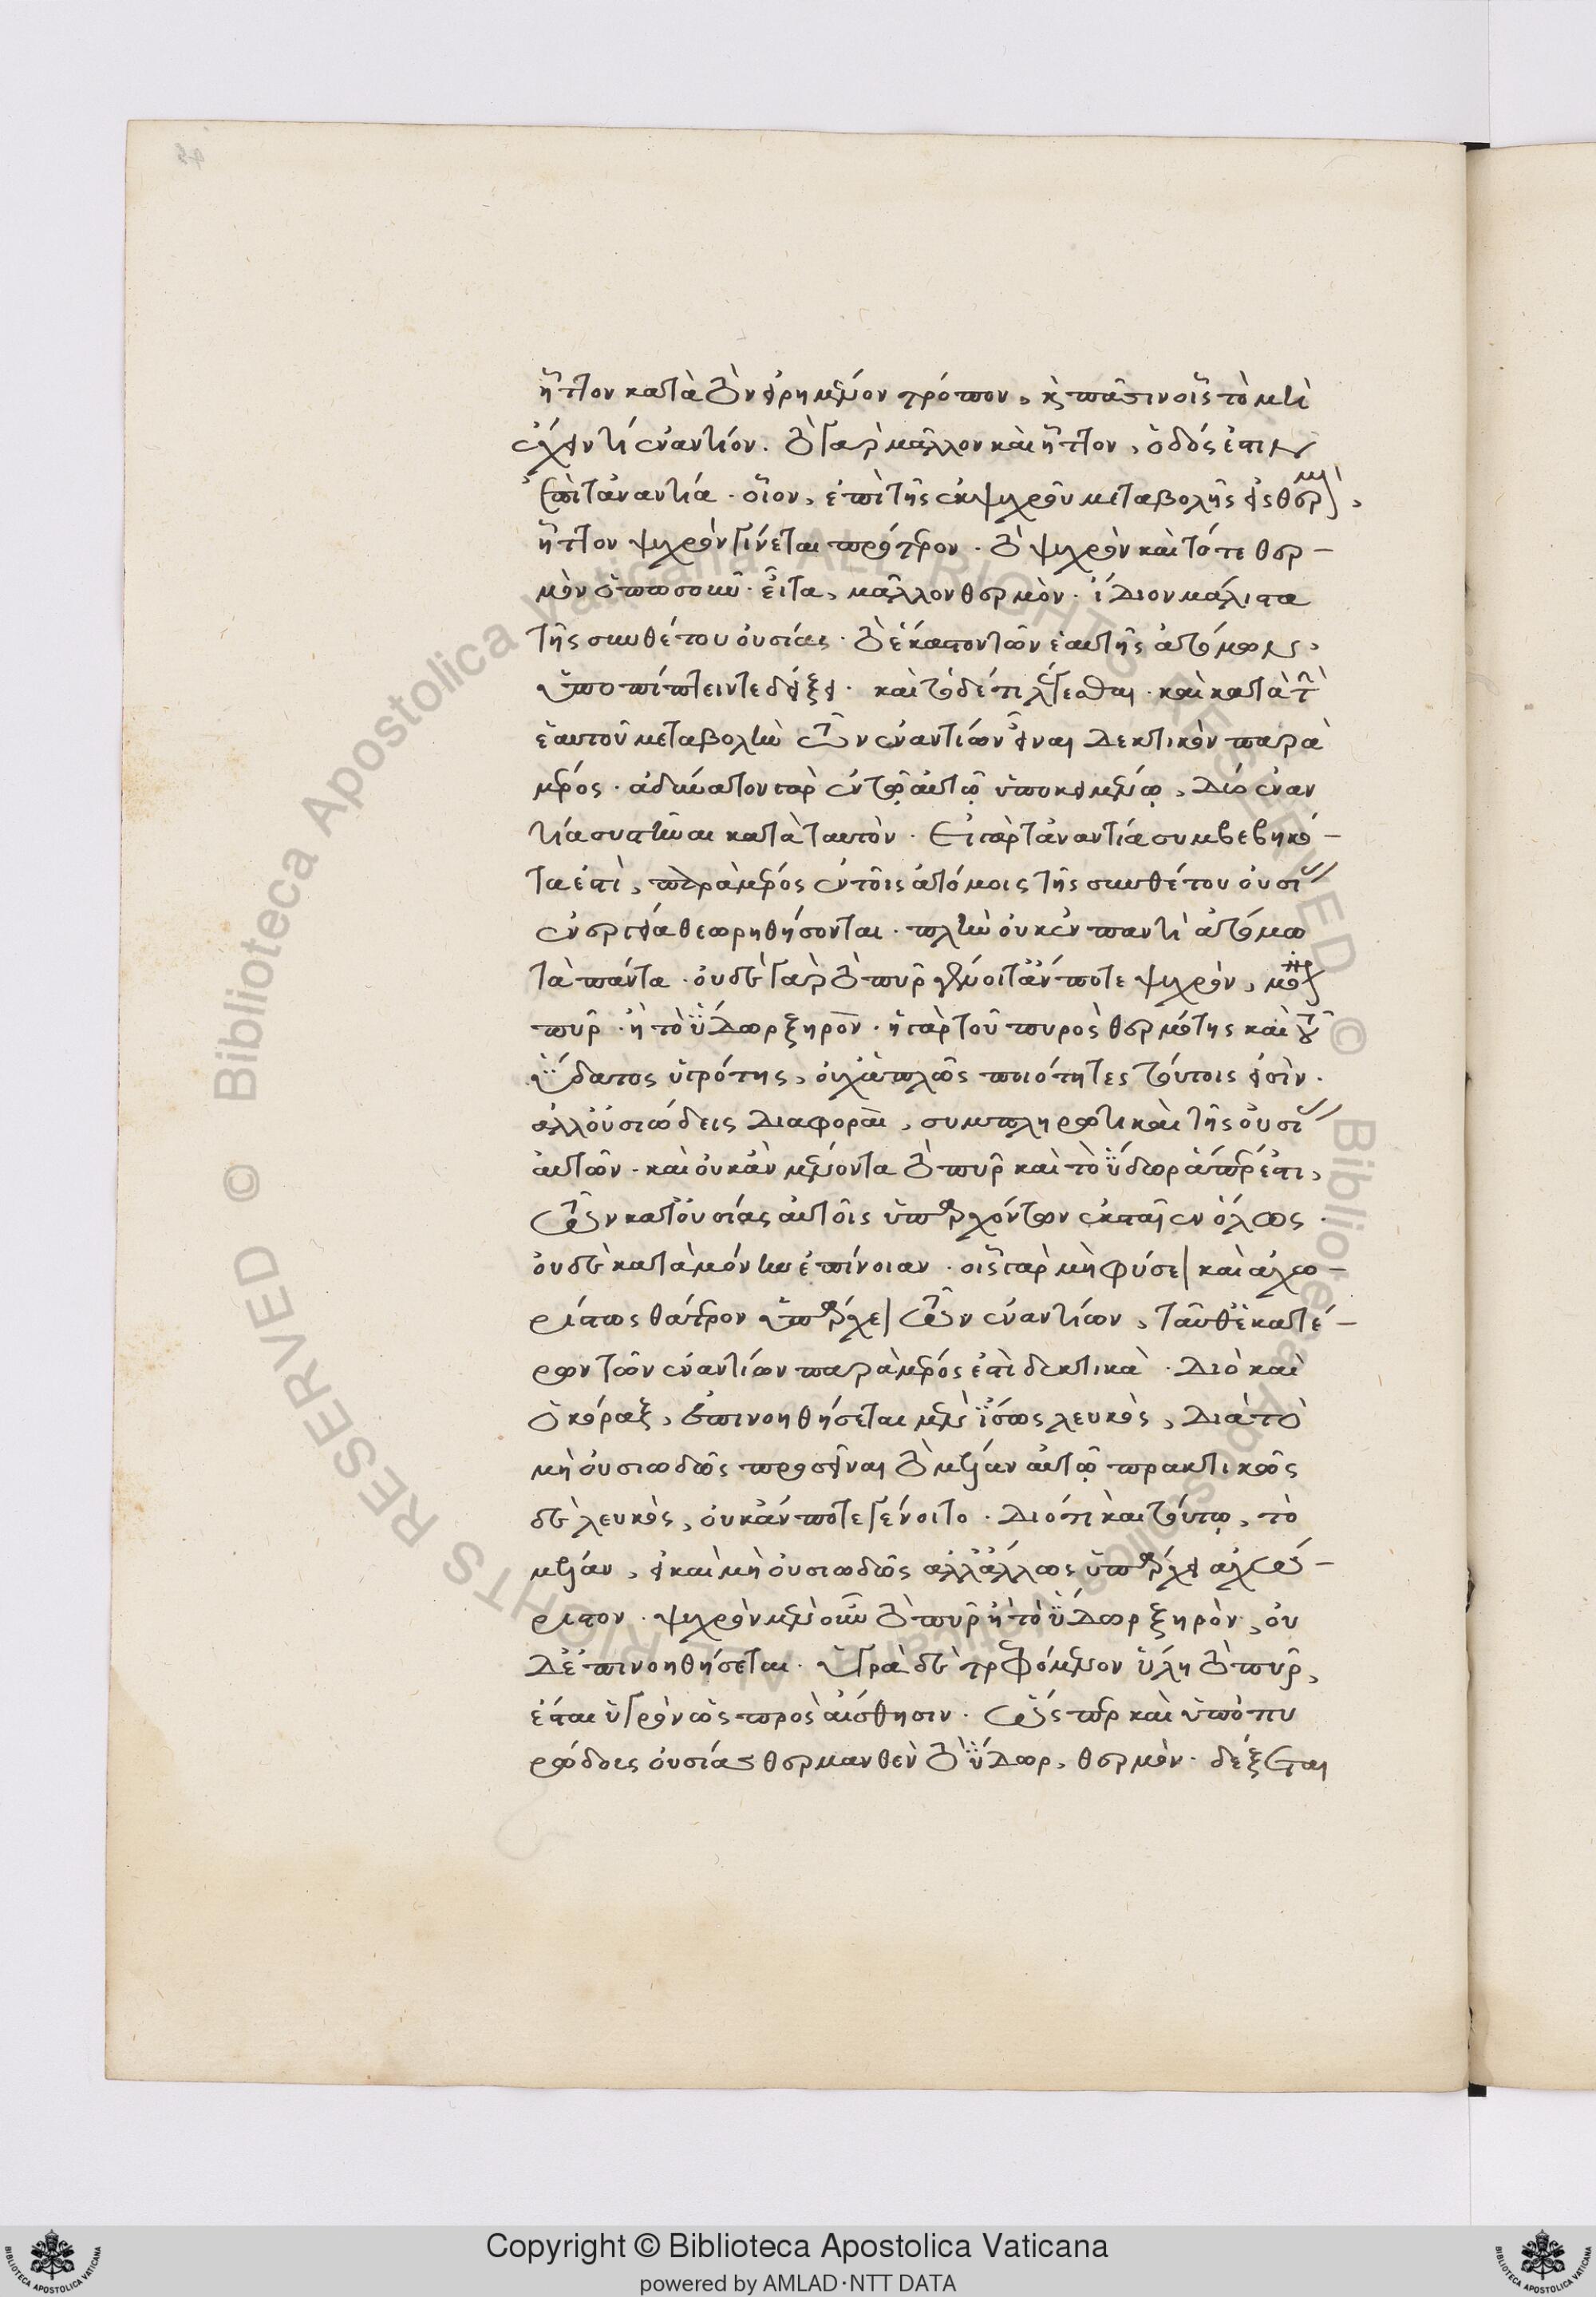 ἧττον κατὰ τὸν εἰρημένον τρόπον, κ πᾶσιν οἷς τὸ μὴ
ἔχειν τί ἐναντίον. τὸ γὰρ μᾶλλον καὶ ἧττον, ὁδός ἐστιν
ἐπὶ τἀναντία. οἷον, ἐπὶ τῆς ἐκ ψυχροῦ μεταβολῆς εἰς θερμ,
ἧττον ψυχρὸν γίνεται πρότερον. τὸ ψυχρὸν καὶ τότε θερ-
μὸν ὁπωσοῦν. εἶτα, μᾶλλον θερμὸν. ἴδιον μάλιστα
τῆς συνθέτου οὐσίας. τὸ ἕκαστον τῶν ἑαυτῆς ἀτόμων,
ὑποπίπτειν τε δείξει. καὶ τόδέ τι λέγεσθαι. καὶ κατὰ τ
ἑαυτοῦ μεταβολὴν τῶν ἐναντίων εἶναι δεκτικὸν παρὰ
μέρος. ἀδύνατον γὰρ ἐν τῷ αὐτῷ ὑποκειμένῳ, δύο ἐναν
τία συστῆναι κατὰ ταυτὸν. Εἰ γὰρ τἀναντία συμβεβηκό-
τα ἐστὶ, παρὰ μέρος ἐν τοῖς ἀτόμοις τῆς συνθέτου οὐσί
ἐνεργείᾳ θεωρηθήσονται. πλὴν οὐκ ἐν παντὶ ἀτόμῳ
τὰ πάντα. οὐδὲ γὰρ τὸ πῦρ γένοιτ' ἄν ποτε ψυχρὸν,
πῦρ. ἢ τὸ ὕδωρ ξηρὸν. ἡ γὰρ τοῦ πυρὸς θερμότης καὶ τοῦ
ὕδατος ὑγρότης, οὐχ ἁπλῶς ποιότητες τούτοις εἰσὶν.
ἀλλ' οὐσιώδεις διαφοραὶ, συμπληρωτικαὶ τῆς οὐσί
αὐτῶν. καὶ οὐκ ἂν μένοντα τὸ πῦρ καὶ τὸ ὕδωρ ἅπερ ἐστι,
τῶν κατ' οὐσίας αὐτοῖς ὑπαρχόντων ἐκσταῖεν ὅλως.
οὐδὲ κατὰ μόνην ἐπίνοιαν. οἷς γὰρ μὴ φύσει καὶ ἀχω-
ρίστως θάτερον ὑπάρχει τῶν ἐναντίων, ταῦθ' ἑκατέ-
ρων τῶν ἐναντίων παρὰ μέρος ἐστὶ δεκτικὰ. Διὸ καὶ
ὁ κόραξ, ἐπινοηθήσεται μὲν ἴσως λευκὸς, διὰ τὸ
μὴ οὐσιωδῶς προσεῖναι τὸ μέλαν αὐτῷ πρακτικῶς
δὲ λευκὸς, οὐκ ἄν ποτε γένοιτο. Διότι καὶ τούτῳ, τὸ
μέλαν, εἰ καὶ μὴ οὐσιωδῶς ἀλλ' ἄλλως ὑπάρχει ἀχώ-
ριστον. ψυχρὸν μὲν οὖν τὸ πῦρ ἢ τὸ ὕδωρ ξηρὸν, οὐ
δ' ἐπινοηθήσεται. ὑγρᾷ δὲ τρεφόμενον ὕλῃ τὸ πῦρ,
ἔσται ὑγρὸν ὡς πρὸς αἴσθησιν. ὥς περ καὶ ὑπὸ πυ
ρώδους οὐσίας θερμανθὲν τὸ ὕδωρ, θερμὸν. δέξεται
Copyright © Biblioteca Apostolica Vaticana
powered by AMLAD·NTT DATA